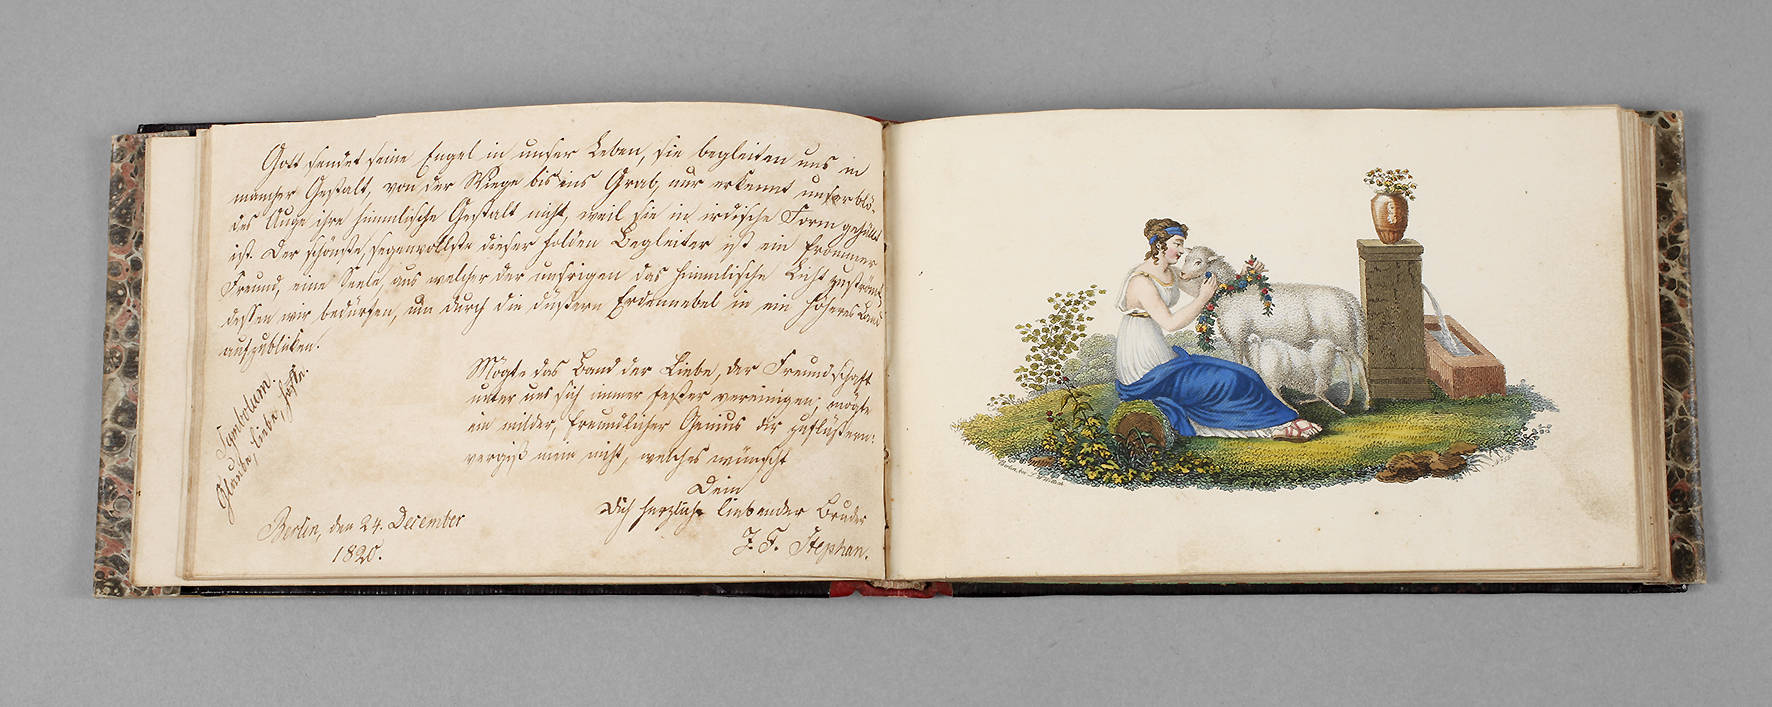 Gott sendet seine Engel in unser Leben, sie begleiten uns in
mancher Gestalt, von der Wiege bis ins Grab, nur erkennt unser blö-
des Auge ihre himmlische Gestalt nicht, weil sie in irdische Form gehüllt
ist. Der schönste, segenvollste dieser holden Begleiter ist ein frommer
Freund, eine Seele, aus welcher der unsrigen das himmlische Licht zuströmt,
dessen wir bedürfen, um durch die düstern Erdennebel in ein höheres Land
aufzublicken.
Mögte das Band der Liebe, der Freundschaft
unter uns sich immer fester vereinigen; mögte
ein milder, freundlicher Genius dir zuflüstern:
vergiß mein nicht, welches wünscht
Dein
Dich herzlich liebender Bruder
J. G. Stephan.
Symbolum.
Glaube, Liebe, Hoffe.
Berlin, den 24. December
1820.
Berlin, bei L. W. Wittich